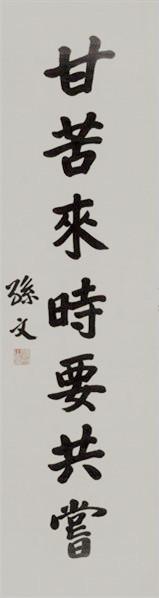 甘苦來時要共嘗
孫文